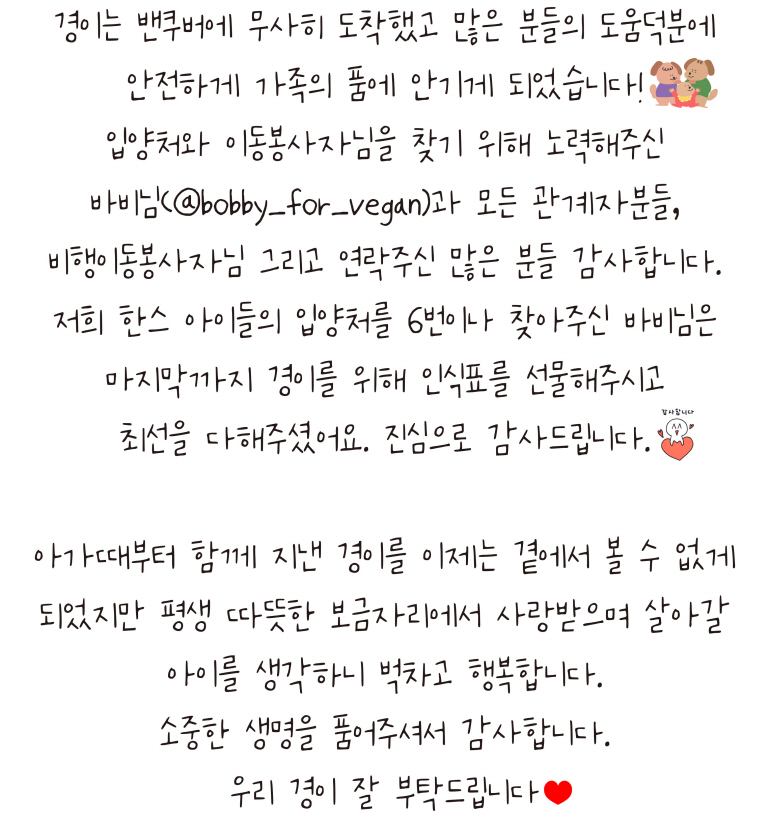 경이는 밴쿠버에 무사히 도착했고 많은 분들의 도움덕분에
안전하게 가족의 품에 안기게 되었습니다!
입양처와 이동봉사자님을 찾기 위해 노력해주신
바비님(@bobby_for_vegan)과 모든 관계자분들,
비행이동봉사자님 그리고 연락주신 많은 분들 감사합니다.
저희 한스 아이들의 입양처를 6번이나 찾아주신 바비님은
마지막까지 경이를 위해 인식표를 선물해주시고
감사합니다
최선을 다해주셨어요. 진심으로 감사드립니다.
아가때부터 함께 지낸 경이를 이제는 곁에서 볼 수 없게
되었지만 평생 따뜻한 보금자리에서 사랑받으며 살아갈
아이를 생각하니 벅차고 행복합니다.
소중한 생명을 품어주셔서 감사합니다.
우리 경이 잘 부탁드립니다♥